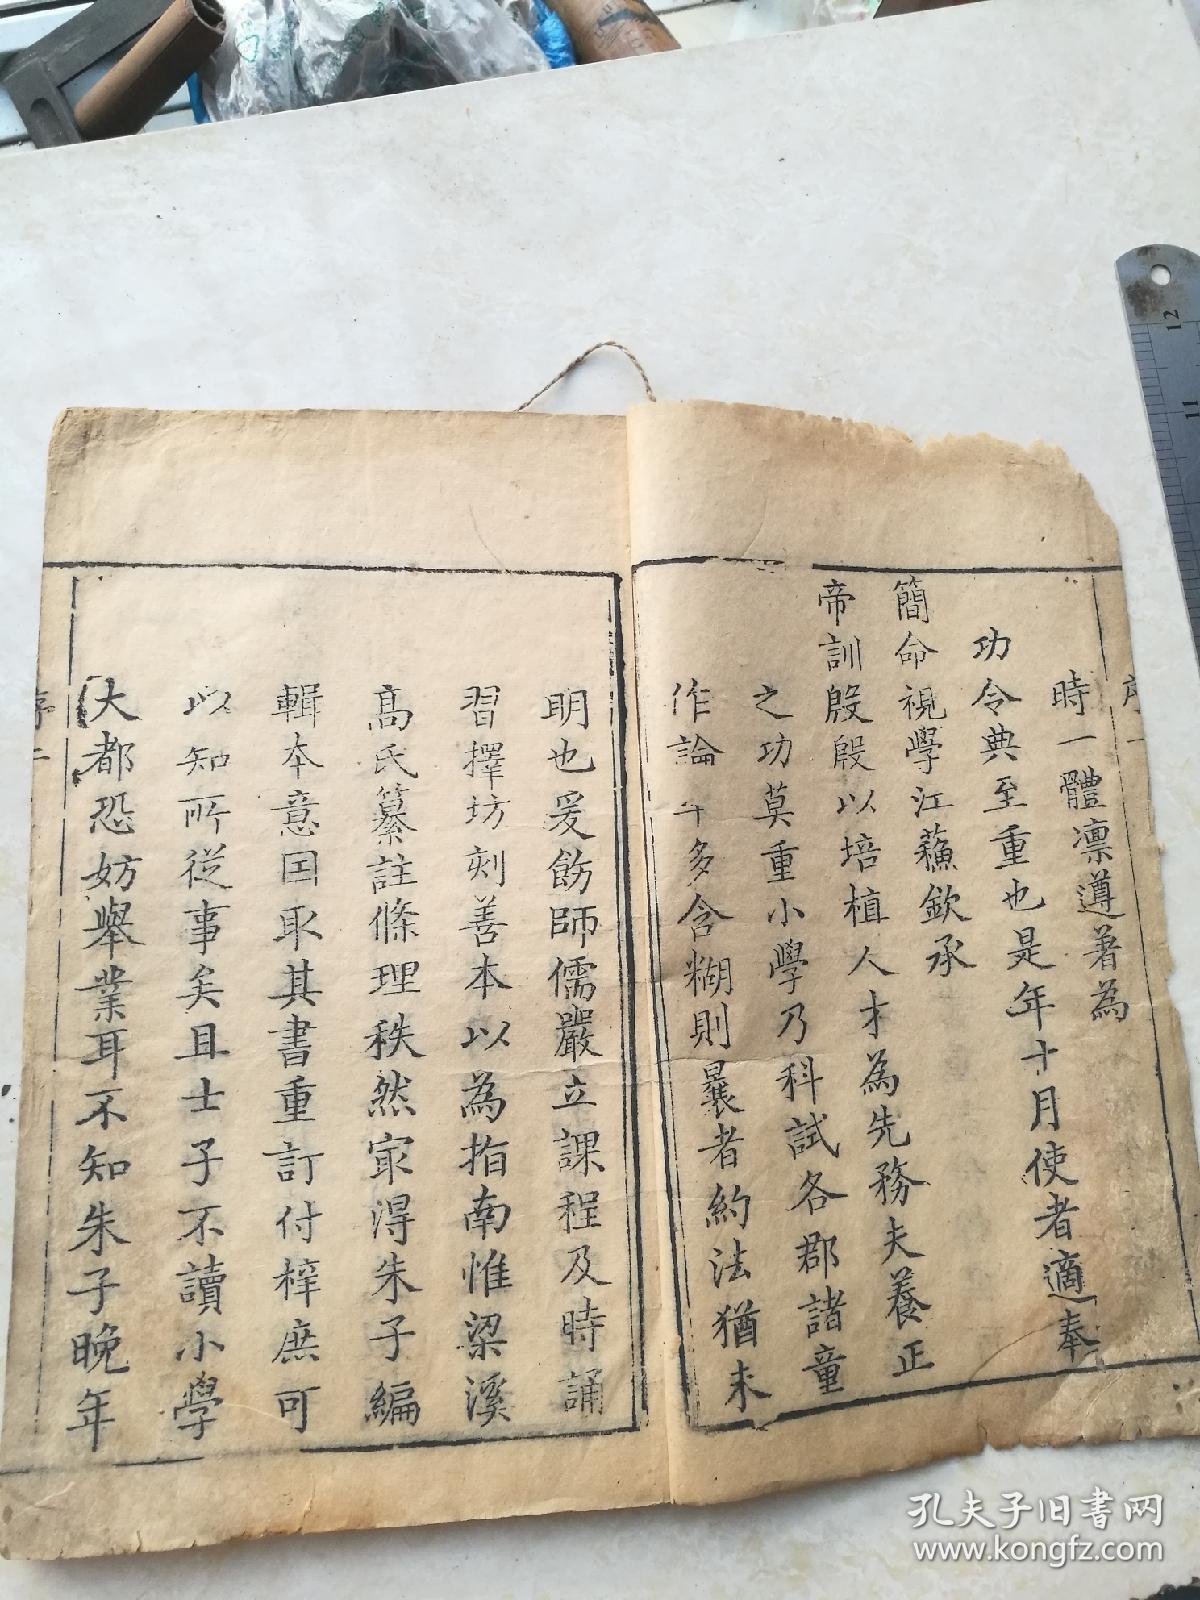 序一
時一體凛遵著為
功令典至重也是年十月使者適奉
簡命視學江蘓欽承
帝訓殷殷以培植人才為先務夫養正
之功莫重小學乃科試各郡諸童
作論多含糊則曩者約法猶未
明也爰飭師儒嚴立課程及時誦
習擇坊刻善本以為指南惟梁溪
高氏纂註條理秩然寔得朱子編
輯本意因取其書重訂付梓庶可
以知所從事矣且士子不讀小學
大都恐妨舉業耳不知朱子晚年
序二
12
11
孔夫子旧书网
www.kongfz.com